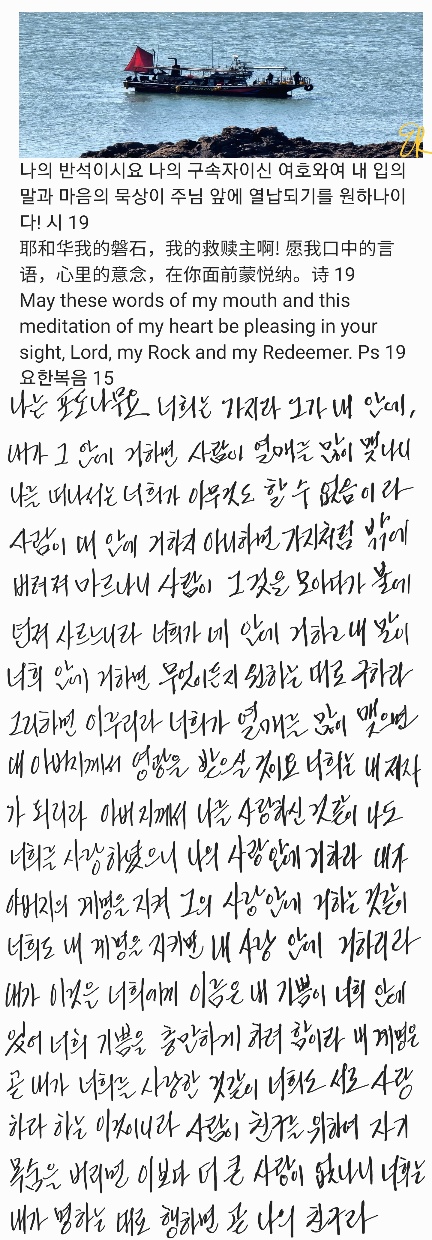 나의 반석이시요 나의 구속자이신 여호와여 내 입의
말과 마음의 묵상이 주님 앞에 열납되기를 원하나이
다! 시 19
耶和华我的磐石，我的救赎主啊! 愿我口中的言
语，心里的意念，在你面前蒙悦纳。诗 19
May these words of my mouth and this
meditation of my heart be pleasing in your
sight, Lord, my Rock and my Redeemer. Ps 19
요한복음 15
나는 포도나무요 너희는 가지라 그가 내 안에,
내가 그 안에 거하면 사람이 열매를 많이 맺나니
나를 떠나서는 너희가 아무것도 할 수 없음이라
사람이 내 안에 거하지 아니하면 가지처럼 밖에
버려져 마르나니 사람이 그것을 모아다가 불에
던져 사르느니라 너희가 내 안에 거하고 내 말이
너희 안에 거하면 무엇이든지 원하는 대로 구하라
그리하면 이루리라 너희가 열매를 많이 맺으면
내 아버지께서 영광을 받으실 것이요 너희는 내 제자
가 되리라 아버지께서 나를 사랑하신 것같이 나도
너희를 사랑하였으니 나의 사랑 안에 거하라 내가
아버지의 계명을 지켜 그의 사랑 안에 거하는 것같이
너희도 내 계명을 지키면 내 사랑 안에 거하리라
내가 이것을 너희에게 이름은 내 기쁨이 너희 안에
있어 너희 기쁨을 충만하게 하려 함이라 내 계명은
곧 내가 너희를 사랑한 것같이 너희도 서로 사랑
하라 하는 이것이니라 사람이 친구를 위하여 자기
목숨을 버리면 이보다 더 큰 사랑이 없나니 너희는
내가 명하는 대로 행하면 곧 나의 친구라